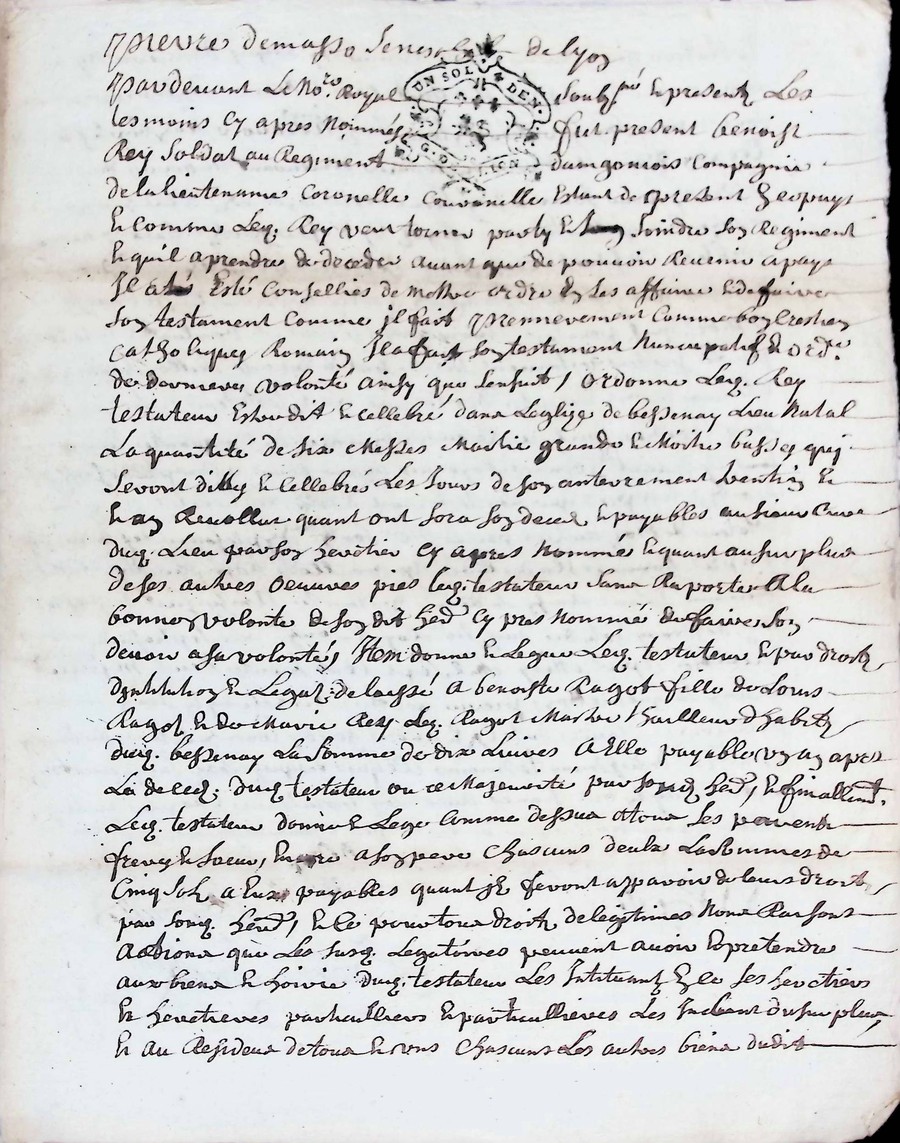 pierre demasso senes de lyon
UN SOL DEN
G. D. LION
pardevant le No.re Royal soubz.né et presentz Les
tesmoins cy apres Nommés fut present benoist
Rey soldat au Regiment dangoumois Compagnie
de la lieutenanse coronelle couronelle Estant de present
Et comme Leq. Rey veut torner partir Joindre son Regiment
Et quil aprendre de deceder avant que de pouvoir Revenir a pays
Il Esté Conselliés de mettre ordre les affaires Et de faire
son testament comme jl fait premierement comme bon Crestien
catholicques Romain Il a faict son testament Nuncupatif Et ord.ce
de derniere volonté ainsy que sensuit / ordonne Leq. Rey
testateur Estre dit Et cellebré dans Leglize de bessenay Lieu Natal
La quantité de six Messes Moitie grande Et Moitie basses qui
seront dittes Et cellebrés Les Jours de son anterrement
Et an Revollut quant ont sera son decex Et payables au sieur Cure
duq. Lieu par son heretier cy apres Nommé Et quant au surplus
de ses autres oeuvres pies leq. testateur sans Raporte A la
bonne volonté de son dit her.er Cy pres Nommé de faire son
devoir a sa volontés / Item donne Et Legue Leq. testateur Et par droit
Dinstitution Et Legat delaissé A benoiste Ragot fille de Louis
Ragot Et de Marie Rey Leq. Ragot Maistre thailleur dhabitz
duq. bessenay La somme de dix Livires A Elle payable un an apres
Le decetz. duq testateur ou ce Majeurité par sondt her.er, Et finallement.
Leq. testateur donne Et Legue Comme dessus a tous ses parents
freres Et soeur, Encore a son pere chascuns deulx La sommes de
Cinq solz a Eux payables quant jlz feront apparoir de leurs droit
par sondt. her.er, Et ce pour tous droitz de legitimes Noms Raisons
Actions que Les susq. Legatoires peuvent avoir Et pretendre
aux biens Et hoirie duq. testateur Les Intituant ses heretiers
Et heretieres particulliers Et particullieres Les Incluant du surplus
Et au Resideus de tous Et uns chascuns Les autres biens dudit